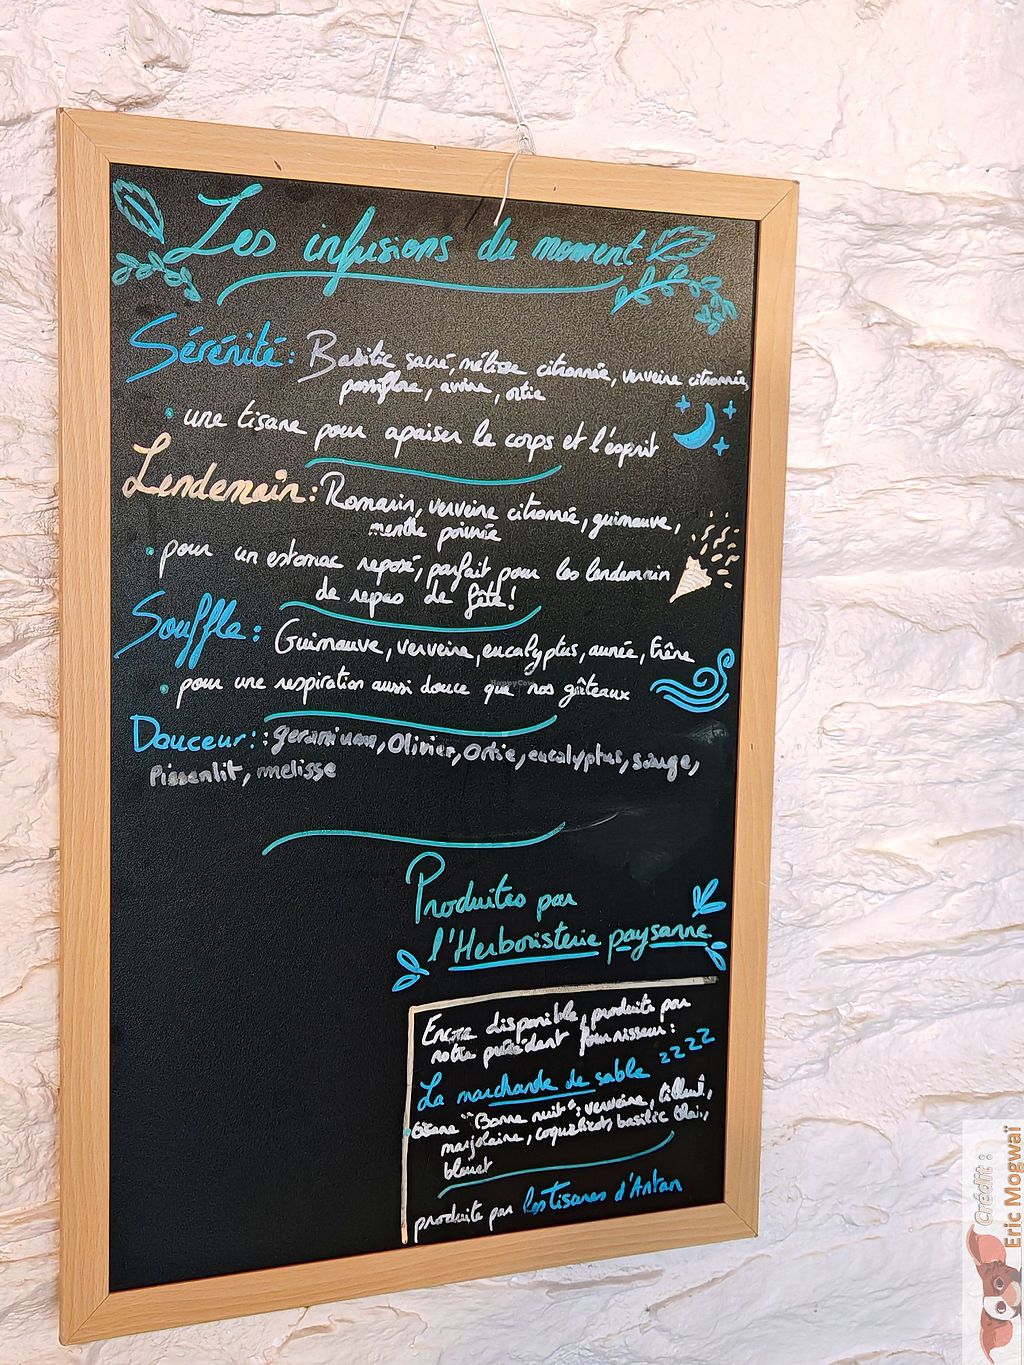 Les infusions du moment
Sérénité : Basilic sacré, mélisse citronnée, verveine citronnée,
passiflore, avoine, ortie
• une tisane pour apaiser le corps et l'esprit
Lendemain : Romarin, verveine citronnée, guimauve,
menthe poivrée
• pour un estomac reposé, parfait pour les lendemain
de repas de fête !
Souffle : Guimauve, verveine, eucalyptus, aunée, frêne
• pour une respiration aussi douce que nos gâteaux
HappyCow
Douceur : : geranium, Olivier, Ortie, eucalyptus, sauge,
Pissenlit, melisse
Produites par
l'Herboristerie paysanne
Encore disponible, produite par
notre précédent fournisseur :
La marchande de sable zzzz
tisane "Bonne nuit" : verveine, tilleul,
marjolaine, coquelicot, basilic thaï,
bleuet
produite par les tisanes d'Antan
Crédit :
Eric Mogwaï